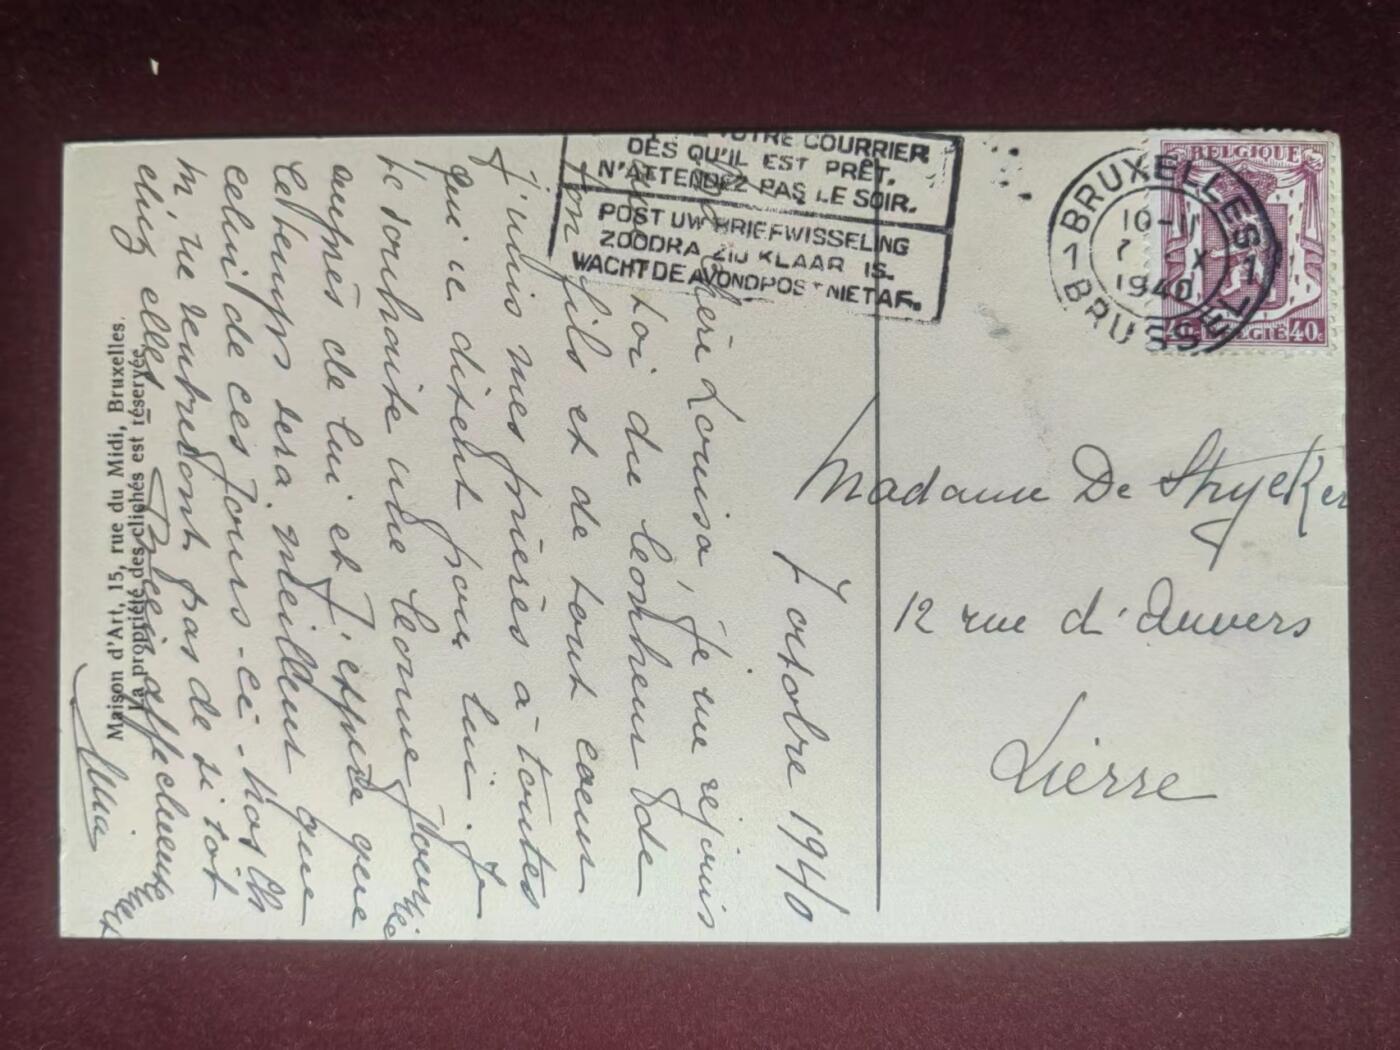 VOTRE COURRIER
DÈS QU'IL EST PRÊT.
N'ATTENDEZ PAS LE SOIR.
POST UW BRIEFWISSELING
ZOODRA ZIJ KLAAR IS.
WACHT DE AVONDPOST NIET AF.
BRUXELLES
1 1
10-11
7 X
1940
BRUSSEL
BELGIQUE
40c BELGIE 40c
7 octobre 1940
chère Louisa, je me rejouis
toi du bonheur de
ton fils et de tout coeur
j'unis mes prières à toutes
qui se disent pour lui. Je
te souhaite une bonne journée
auprès de lui et j'espère que
le temps sera meilleur que
celui de ces jours-ci. Nos Ch
m. ne rentreront pas de si tôt
chez elles. Bien affectueusement
Maison d'Art, 15, rue du Midi, Bruxelles.
La propriété des clichés est réservée.
Madame De Strycker
12 rue d'Anvers
Lierre